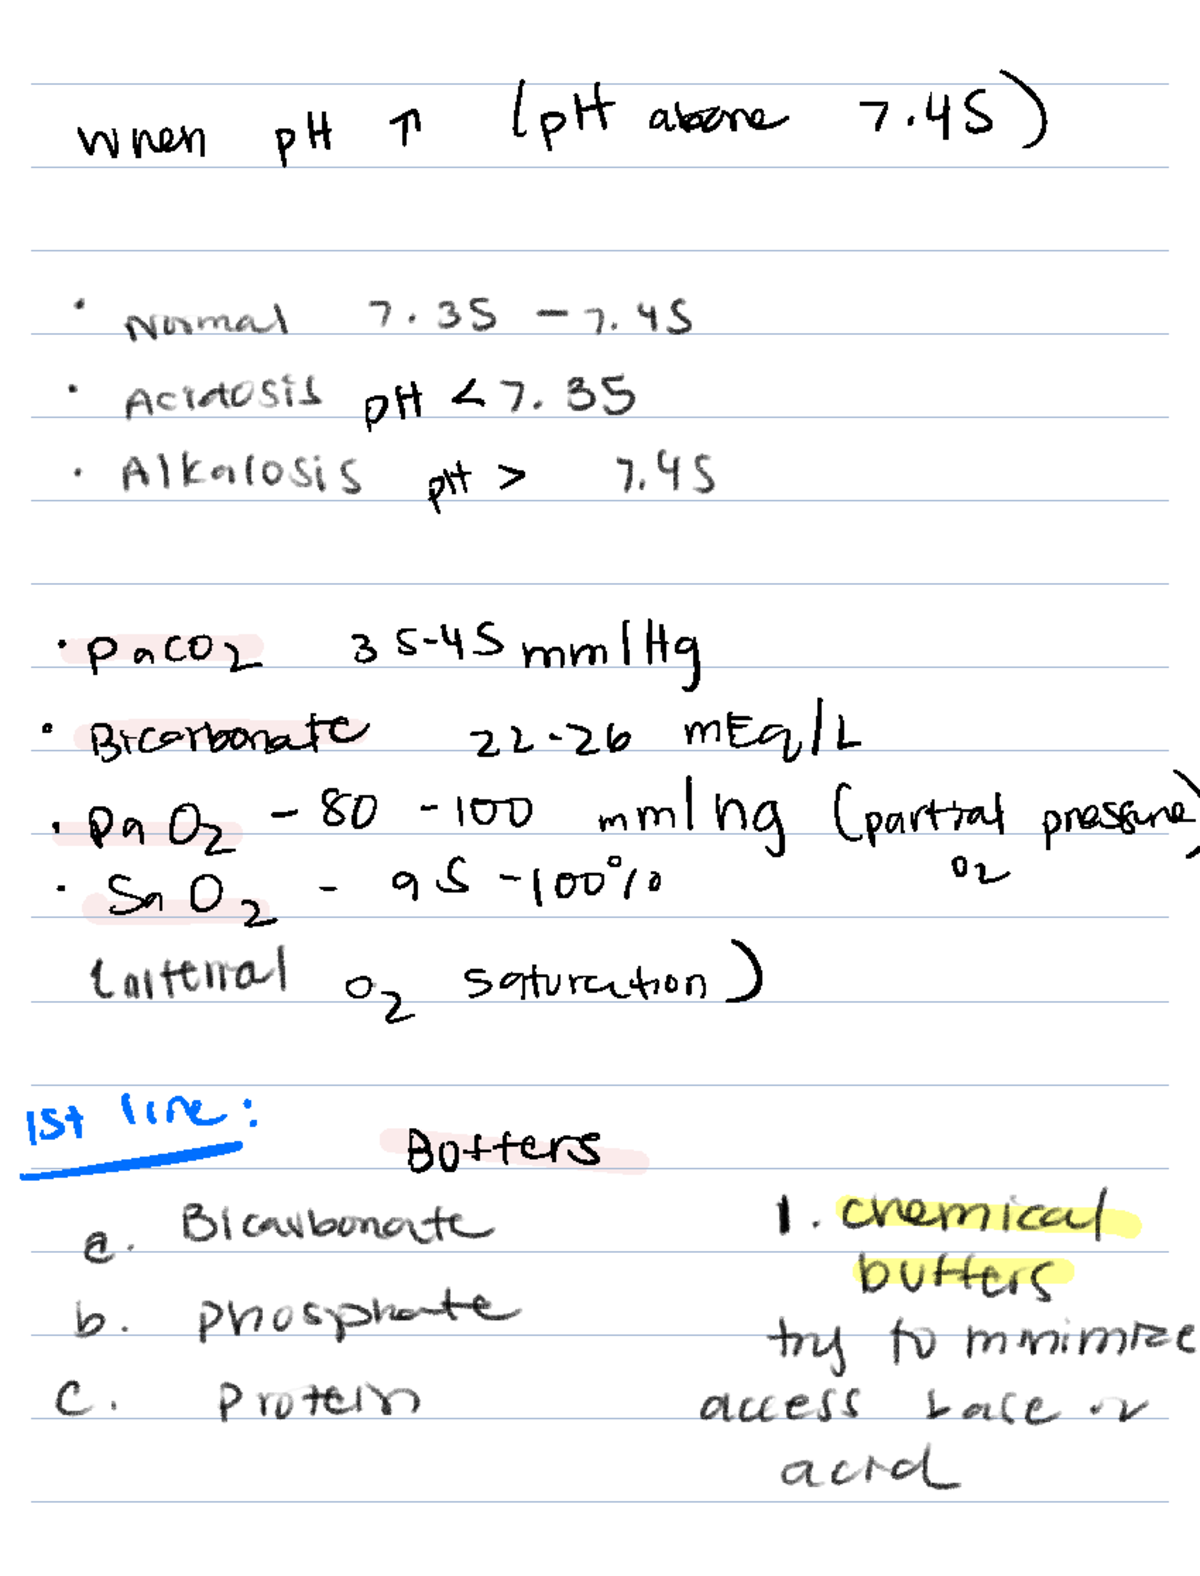 when pH ↑ (pH above 7.45)
• Normal 7.35 - 7.45
• Acidosis pH < 7.35
• Alkalosis pH > 7.45
• PaCO2 35-45 mm/Hg
• Bicarbonate 22-26 mEq/L
• PaO2 - 80 - 100 mm/hg (partial pressure)
O2
• SaO2 - 95 - 100%
O2 saturation)
1st line:
Buffers
a. Bicarbonate
b. Phosphate
C. Protein
1. chemical
buffers
try to minimize
access base or
acid